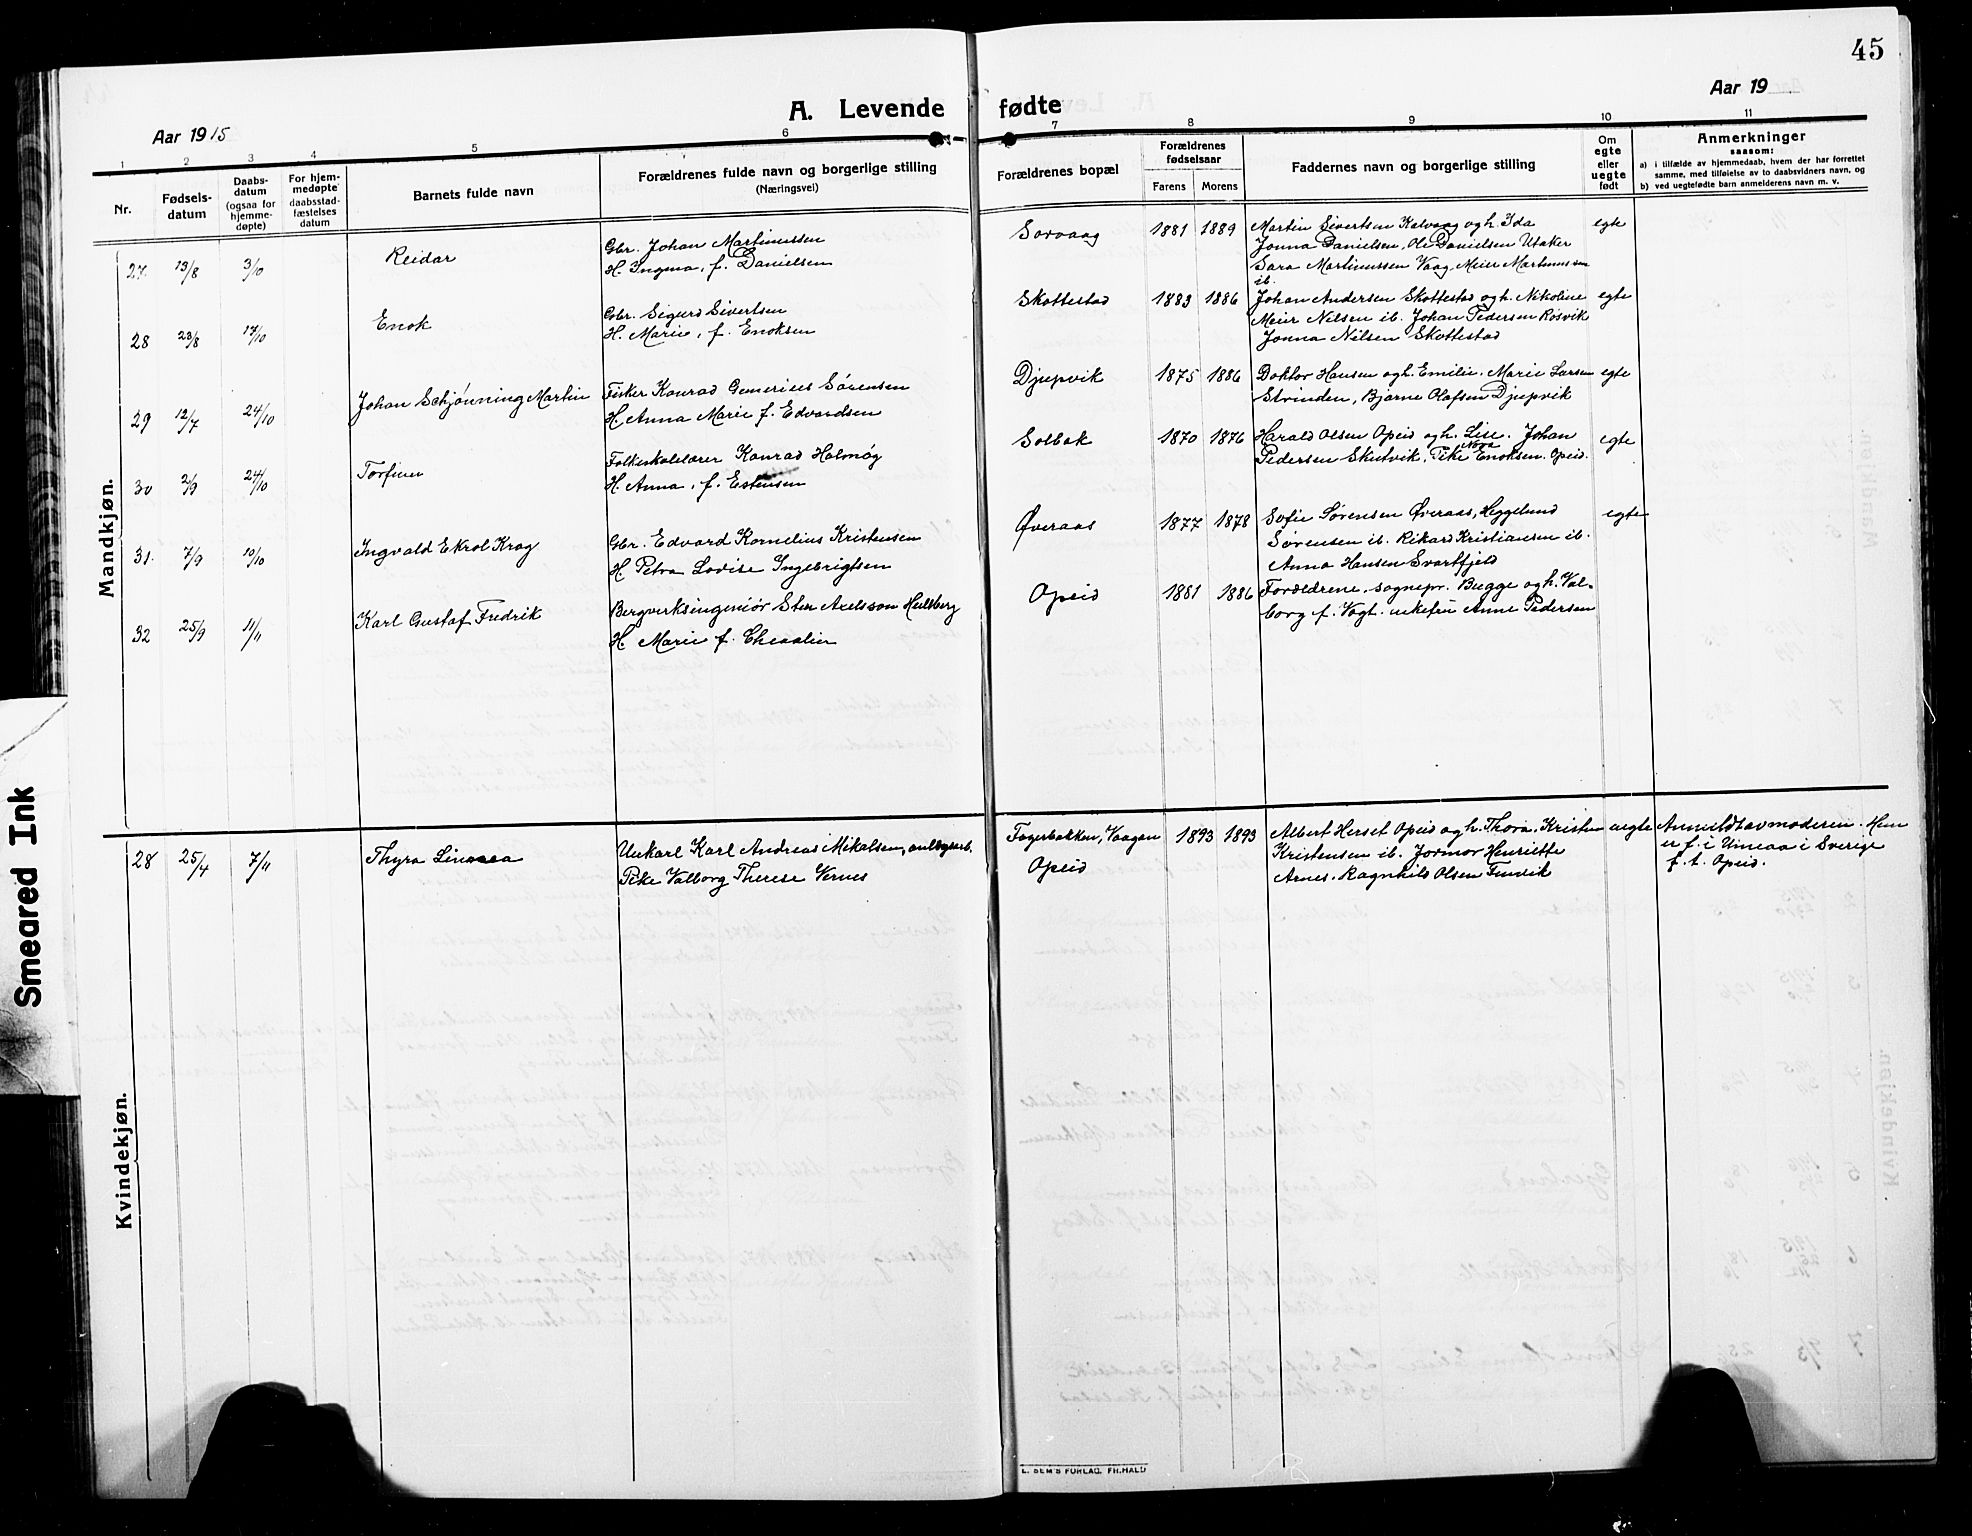 45
A. Levende fødte
Aar 1915
Aar 19
1 2 3 4 5 6 7 8 9 10 11
Nr.
Fødsels-
datum
Daabs-
datum
(ogsaa for
hjemme-
døpte)
For hjem-
medøpte
daabsstad-
fæstelses
datum
Barnets fulde navn
Forældrenes fulde navn og borgerlige stilling
(Næringsvei)
Forældrenes bopæl
Forældrenes
fødselsaar
Farens
Morens
Faddernes navn og borgerlige stilling
Om
egte
eller
uegte
født
Anmerkninger
saasom:
a) i tilfælde av hjemmedaab, hvem der har forrettet
samme, med tilføielse av to daabsvidners navn, og
b) ved uegtefødte barn anmelderens navn m. v.
Mandkjøn.
27 13/8 3/10 Reidar
Gbr. Johan Martinussen
H. Ingma, f. Danielsen
Sorvaag 1881 1889
Martin Sivertsen Kalvaag og h. Ida
Jonna Danielsen, Ole Danielsen Utaker
Sara Martinussen Vaag, Meier Martinussen
ib.
egte
28 23/8 17/10 Enok
Gbr. Sigurd Sivertsen
H. Marie, f. Enoksen
Skottestad 1883 1886
Johan Andersen Skottestad og h. Nikoline
Meier Nilsen ib. Johan Pedersen Rösvik
Jonna Nilsen Skottestad
egte
29 12/7 24/10 Johan Schjønning Martin
Fisker Konrad Gemerius Sørensen
H. Anna Marie f. Edvardsen
Djupvik 1875 1886
Doktor Hansen og h. Emilie. Marie Larsen
Strinden, Bjarne Olafsen Djupvik
egte
30 2/9 24/10 Torfinn
Folkeskolelærer Konrad Holmøy
H. Anna, f. Estensen
Solbak 1870 1876
Harald Olsen Opeid og h. Lise. Johan
Pedersen Skutvik, Pike Nora Enoksen. Opeid.
egte
31. 7/9 10/10 Ingvald Ekrol Krog
Gbr. Edvard Kornelius Kristensen
H. Petra Lovise Ingebrigtsen
Øveraas 1877 1878
Sofie Sørensen Øveraas, Heggelund
Sørensen ib. Rikard Kristiansen ib.
Anna Hansen Svartfjeld
egte
32 25/9 11/11 Karl Gustaf Fredrik
Bergverksingeniør Sten Axelsson
H. Marie f.
Opeid 1881 1886
Forældrene, sognepr. Bugge og h. Val-
borg f. Vogt. Anne Pedersen
Kvindekjøn.
28 25/4 7/11 Thyra Linnea
Unkarl Karl Andreas Mikalsen, anlægsarb.
Pike Valborg Therese Vernes
Fagerbakken, Vaagan
Opeid
1893 1893
Albert Herset Opeid og h. Thora. Kristen
Kristensen ib. Jormor Henriette
Arnes. Ragnhild Olsen
uegte
Anmeldt av moderen. Hun
er f. i Umeaa i Sverige
f. t. Opeid.
E. SEM'S FORLAG, FR.HALD
Smeared Ink